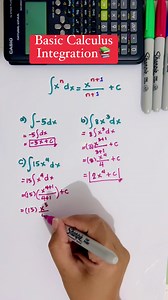 Basic Calculus
Integration📚
∫xⁿdx = xⁿ⁺¹/n+1 + C
a) ∫-5dx
= -5∫dx
= -5x + C
b) ∫8x³dx
= 8∫x³dx
= (8) x³⁺¹/3+1
= (8) x⁴/4
= 2x⁴ + C
c) ∫15x⁴dx
= 15∫x⁴dx
= (15)(x⁴⁺¹/4+1) + C
= (15) x⁵